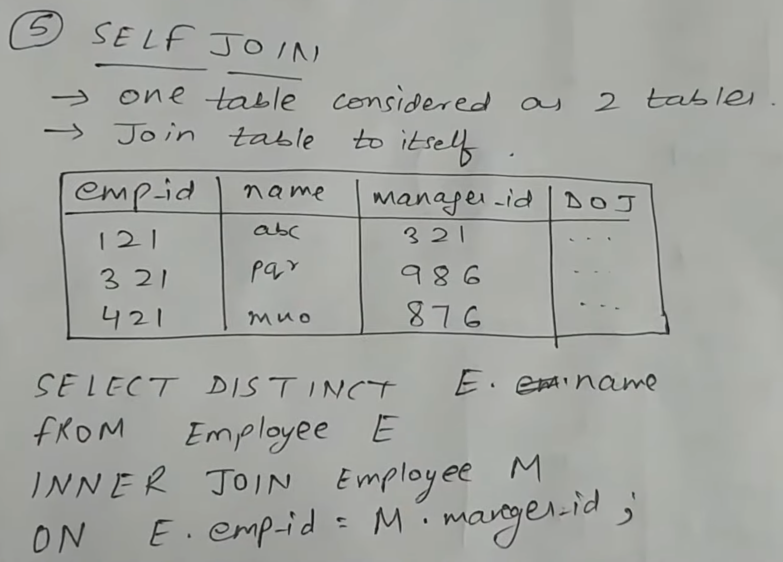 5 SELF JOIN
→ one table considered as 2 tables.
→ Join table to itself.
emp-id name manager-id DOJ
121 abc 321 ...
321 pqr 986 ...
421 mno 876 ...
SELECT DISTINCT E. name
FROM Employee E
INNER JOIN Employee M
ON E. emp-id = M. manager-id ;